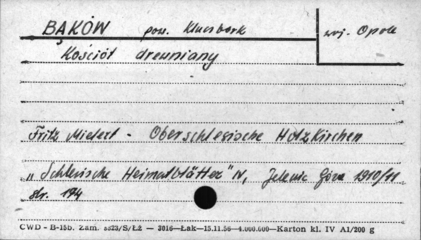 BĄKÓW pow. Kluczbork woj. Opole
Kościół drewniany
Fritz Mielert - Oberschlesische Holzkirchen
„Schlesische Heimatblätter" IV, Jelenia Góra 1910/11
str. 174
CWD - B-15b. Zam. 5523/S/Łż — 3016—Łąk—15.11.56—4.000.000—Karton kl. IV A1/200 g